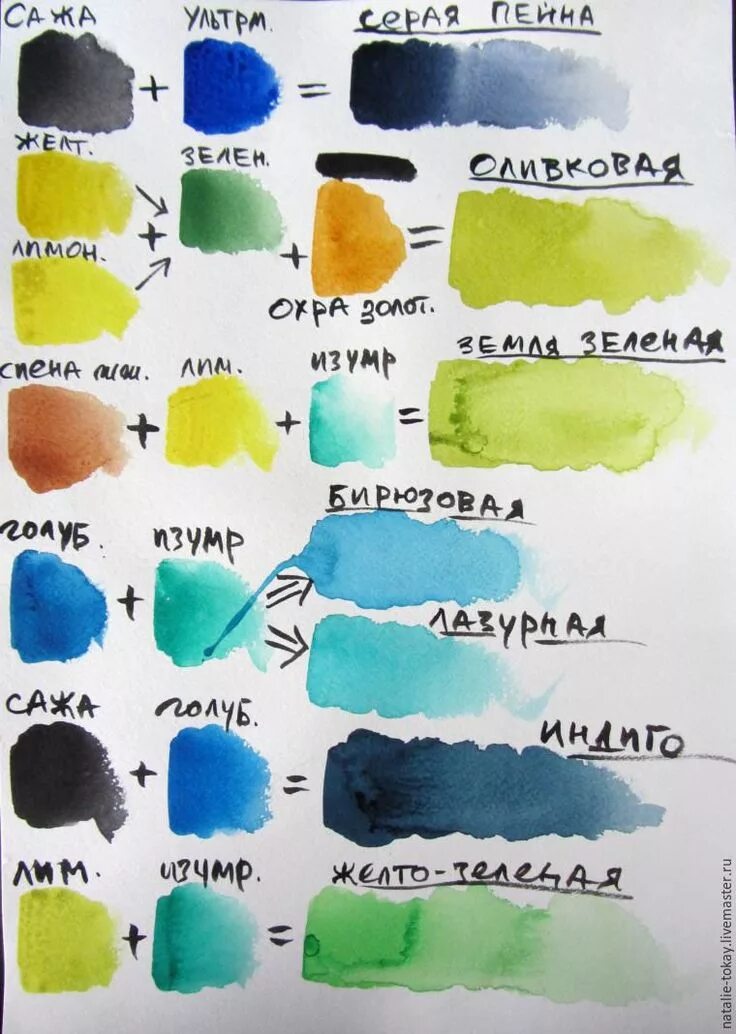 САЖА УЛЬТРМ. СЕРАЯ ПЕЙНА
+ =
ЖЕЛТ. ЗЕЛЕН. ОЛИВКОВАЯ
+ + =
ЛИМОН. ОХРА ЗОЛОТ.
СИЕНА ЛИМ. ИЗУМР ЗЕМЛЯ ЗЕЛЕНАЯ
+ + =
ГОЛУБ. ИЗУМР БИРЮЗОВАЯ
+
ЛАЗУРНАЯ
САЖА ГОЛУБ. ИНДИГО
+ =
ЛИМ. ИЗУМР. ЖЕЛТО-ЗЕЛЕНАЯ
+ =
natalie-tokay.livemaster.ru